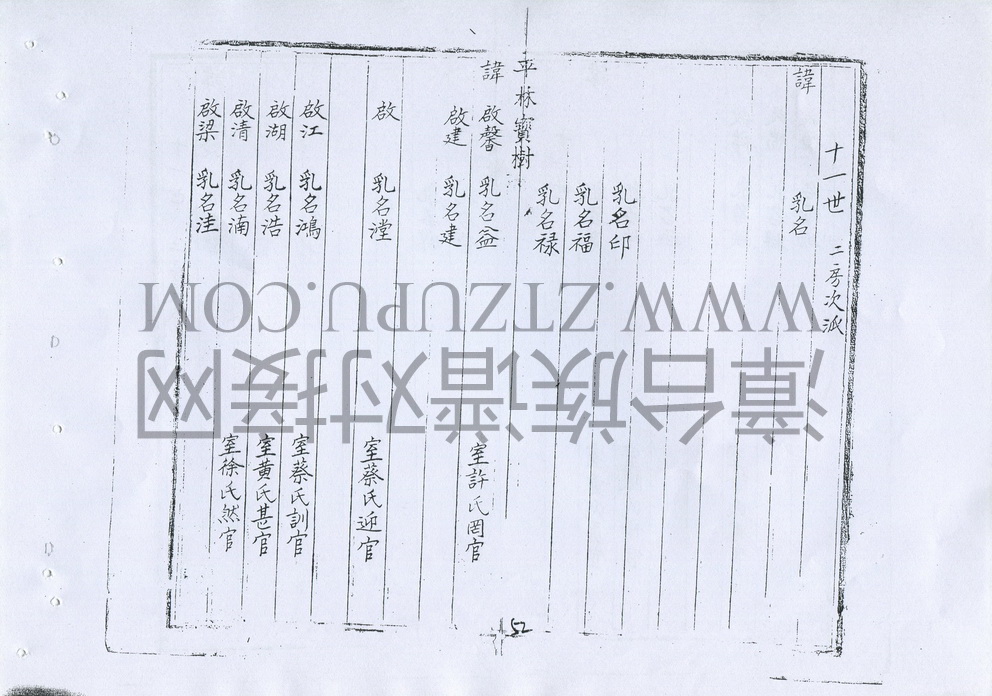 十一世 二房次派
諱 乳名
乳名印
乳名福
乳名禄
平林寶樹
諱 啟馨 乳名益 室許氏罔官
啟建 乳名建
啟 乳名漟 室蔡氏迎官
啟江 乳名鴻 室蔡氏訓官
啟湖 乳名浩 室黄氏甚官
啟清 乳名湳 室徐氏然官
啟梁 乳名洼
52
WWW.ZTZUPU.COM
漳台族谱对接网